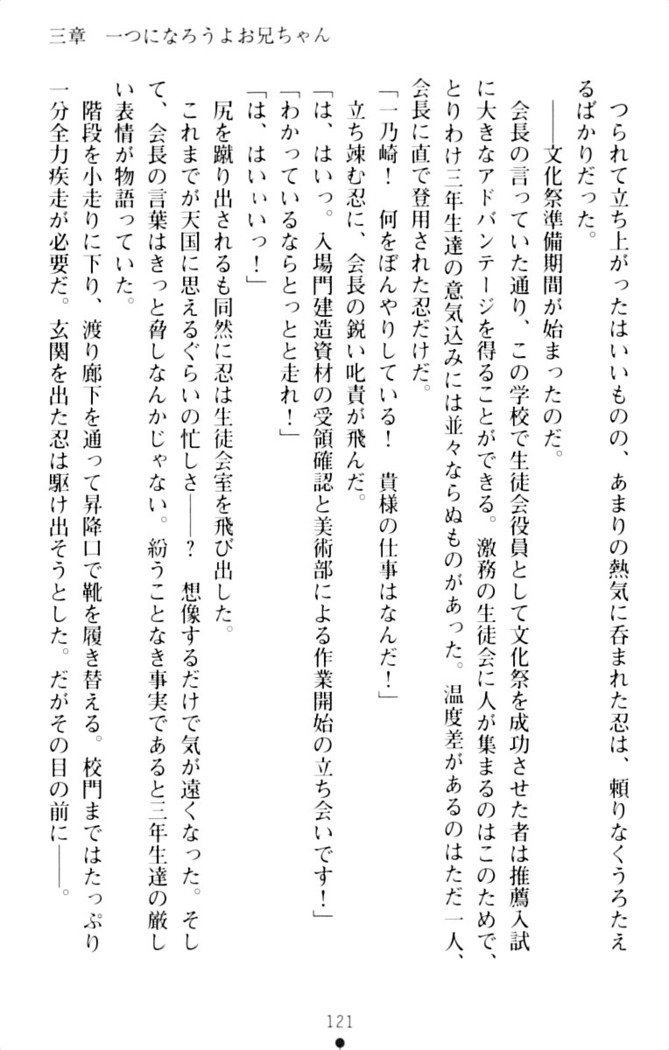 三章　一つになろうよお兄ちゃん
つられて立ち上がったはいいものの、あまりの熱気に呑まれた忍は、頼りなくうろたえ
るばかりだった。
――文化祭準備期間が始まったのだ。
会長の言っていた通り、この学校で生徒会役員として文化祭を成功させた者は推薦入試
に大きなアドバンテージを得ることができる。激務の生徒会に人が集まるのはこのためで、
とりわけ三年生達の意気込みには並々ならぬものがあった。温度差があるのはただ一人、
会長に直で登用された忍だけだ。
「一乃崎！　何をぼんやりしている！　貴様の仕事はなんだ！」
立ち竦む忍に、会長の鋭い叱責が飛んだ。
「は、はいっ。入場門建造資材の受領確認と美術部による作業開始の立ち会いです！」
「わかっているならとっとと走れ！」
「は、はいぃいっ！」
尻を蹴り出されるも同然に忍は生徒会室を飛び出した。
これまでが天国に思えるぐらいの忙しさ――？　想像するだけで気が遠くなった。そし
て、会長の言葉はきっと脅しなんかじゃない。紛うことなき事実であると三年生達の厳し
い表情が物語っていた。
階段を小走りに下り、渡り廊下を通って昇降口で靴を履き替える。校門まではたっぷり
一分全力疾走が必要だ。玄関を出た忍は駆け出そうとした。だがその目の前に――。
121